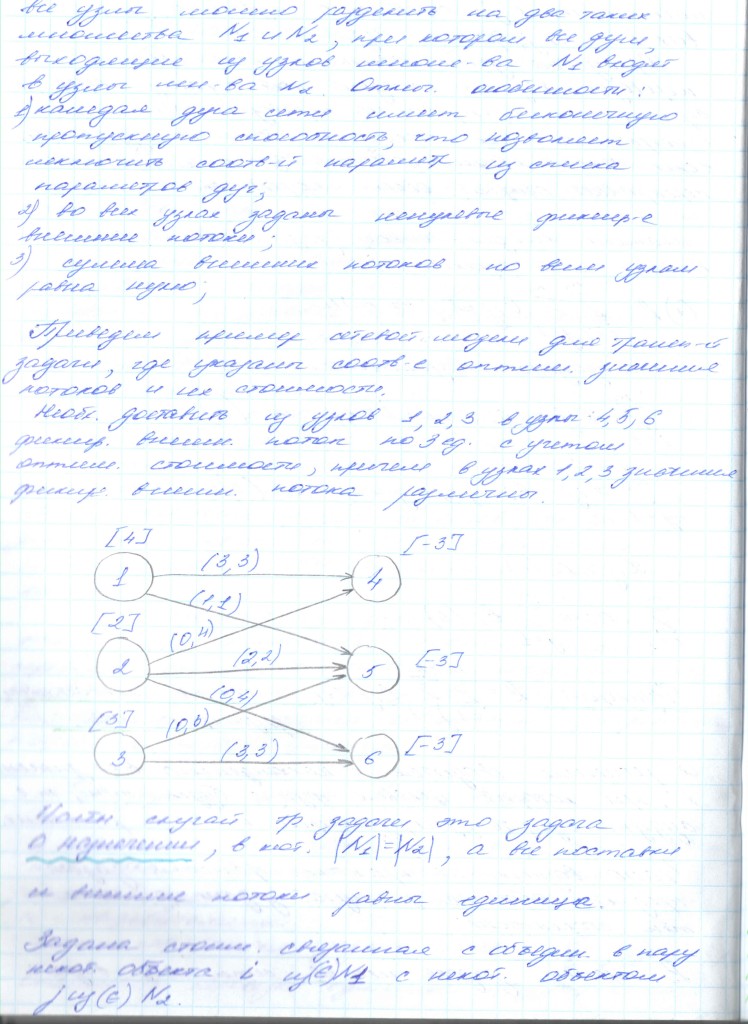 все узлы можно разделить на два таких
множества N1 и N2, при котором все дуги,
выходящие из узлов множ-ва N1 входят
в узлы мн-ва N2. Отлич. особенности:
1) каждая дуга сети имеет бесконечную
пропускную способность, что позволяет
исключить соотв-й параметр из списка
параметров дуг;
2) во всех узлах заданы ненулевые фиксир-е
внешние потоки;
3) сумма внешних потоков по всем узлам
равна нулю;
Приведем пример сетевой модели для трансп-й
задачи, где указаны соотв-е оптим. значения
потоков и их стоимости.
Необх. доставить из узлов 1, 2, 3 в узлы 4, 5, 6
фиксир. внешн. поток по 3 ед. с учетом
оптим. стоимости, причем в узлах 1, 2, 3 значения
фиксир. внешн. потока различны.
[4] (3,3) [-3]
1 4
(1,1)
[2] (0,4)
2 (2,2) 5 [-3]
(0,4)
[3] (0,6)
3 (3,3) 6 [-3]
Частн. случай тр. задачи это задача
о назначении, в кот. |N1|=|N2|, а все поставки
и внешние потоки равны единице.
Задана стоим. связанная с объедин. в пару
некот. объекта i из(∈)N1 с некот. объектом
j из(∈) N2.